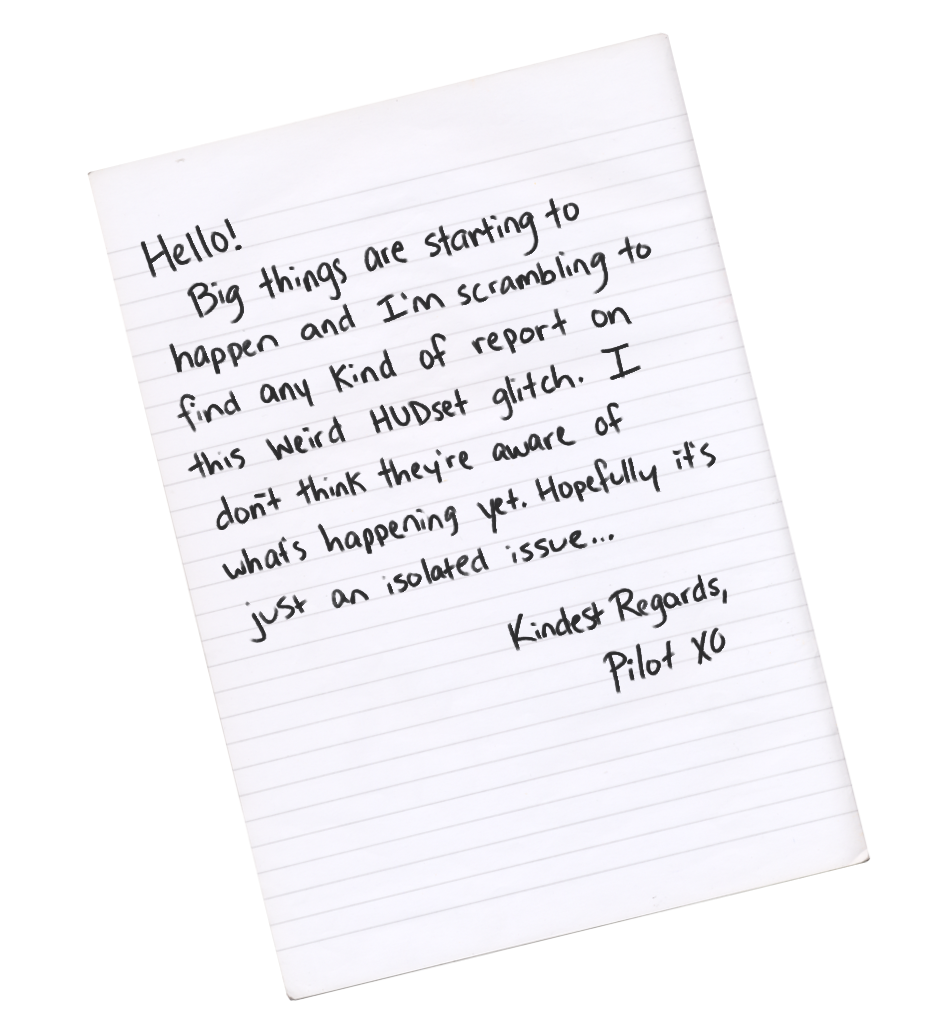 Hello!
Big things are starting to
happen and I'm scrambling to
find any kind of report on
this weird HUDset glitch. I
don't think they're aware of
what's happening yet. Hopefully it's
just an isolated issue...
Kindest Regards,
Pilot XO